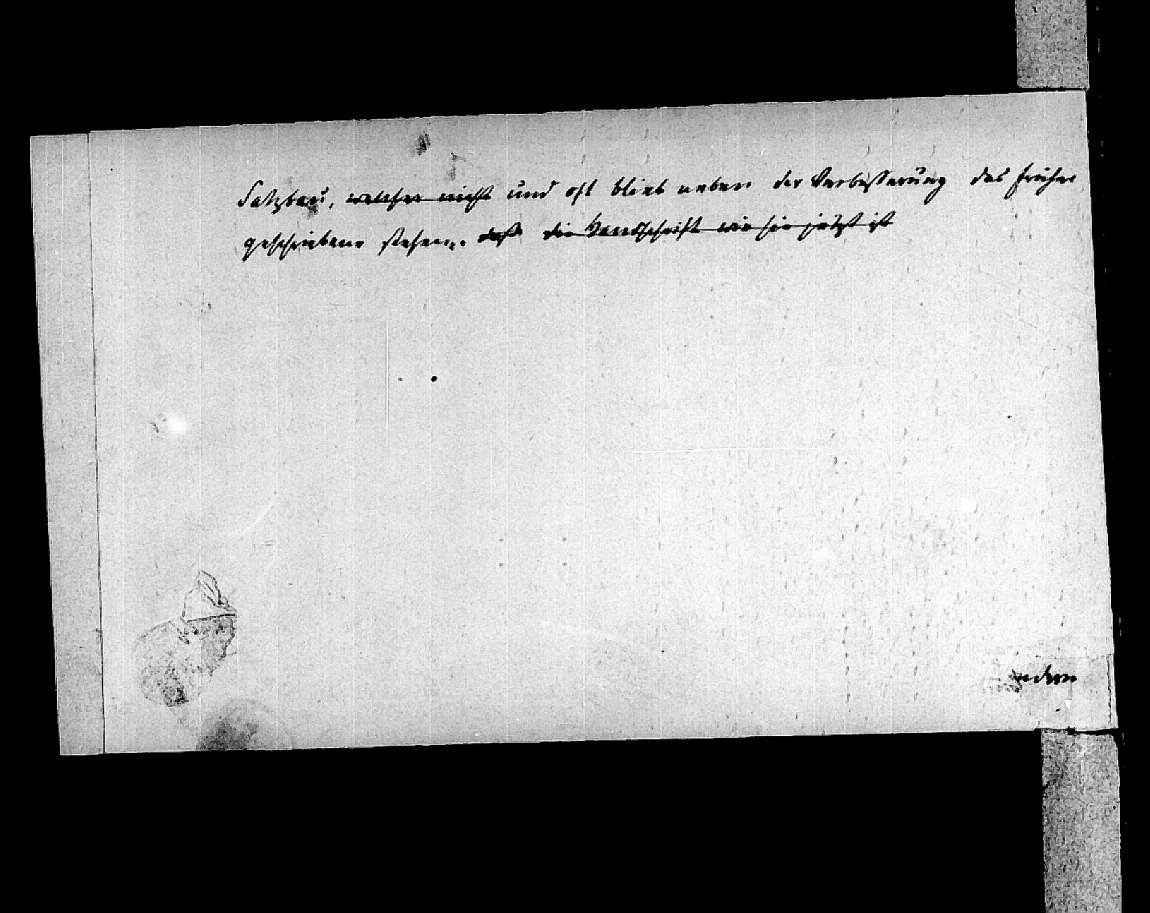 Satzbau, welcher nicht und oft blieb neben der Verbesserung das früher
geschriebene stehen. daß die Handschrift wie sie jetzt ist
ndern